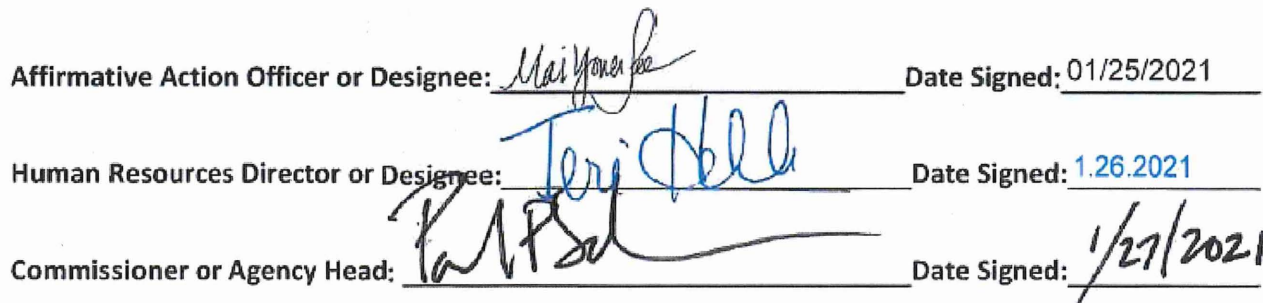 Affirmative Action Officer or Designee: Date Signed: 01/25/2021
Human Resources Director or Designee: Teri Date Signed: 1.26.2021
Commissioner or Agency Head: Date Signed: 1/27/2021